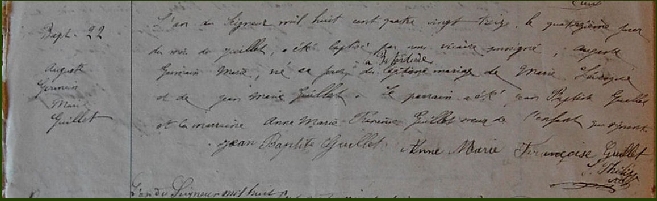 Bapt. 22
Auguste
Germain
Marie
Guillet
L'an du Seigneur mil huit cent quatre vingt treize le quatorzième jour
du mois de juillet, a été baptisé par moi vicaire soussigné, Auguste
Germain Marie, né à la Portière du légitime mariage de Marie
et de Jean Marie Guillet. Le parrain a été Jean Baptiste Guillet
et la marraine Anne Marie Françoise Guillet soeur de l'enfant
Jean Baptiste Guillet Anne Marie Françoise Guillet
L'an du Seigneur mil huit